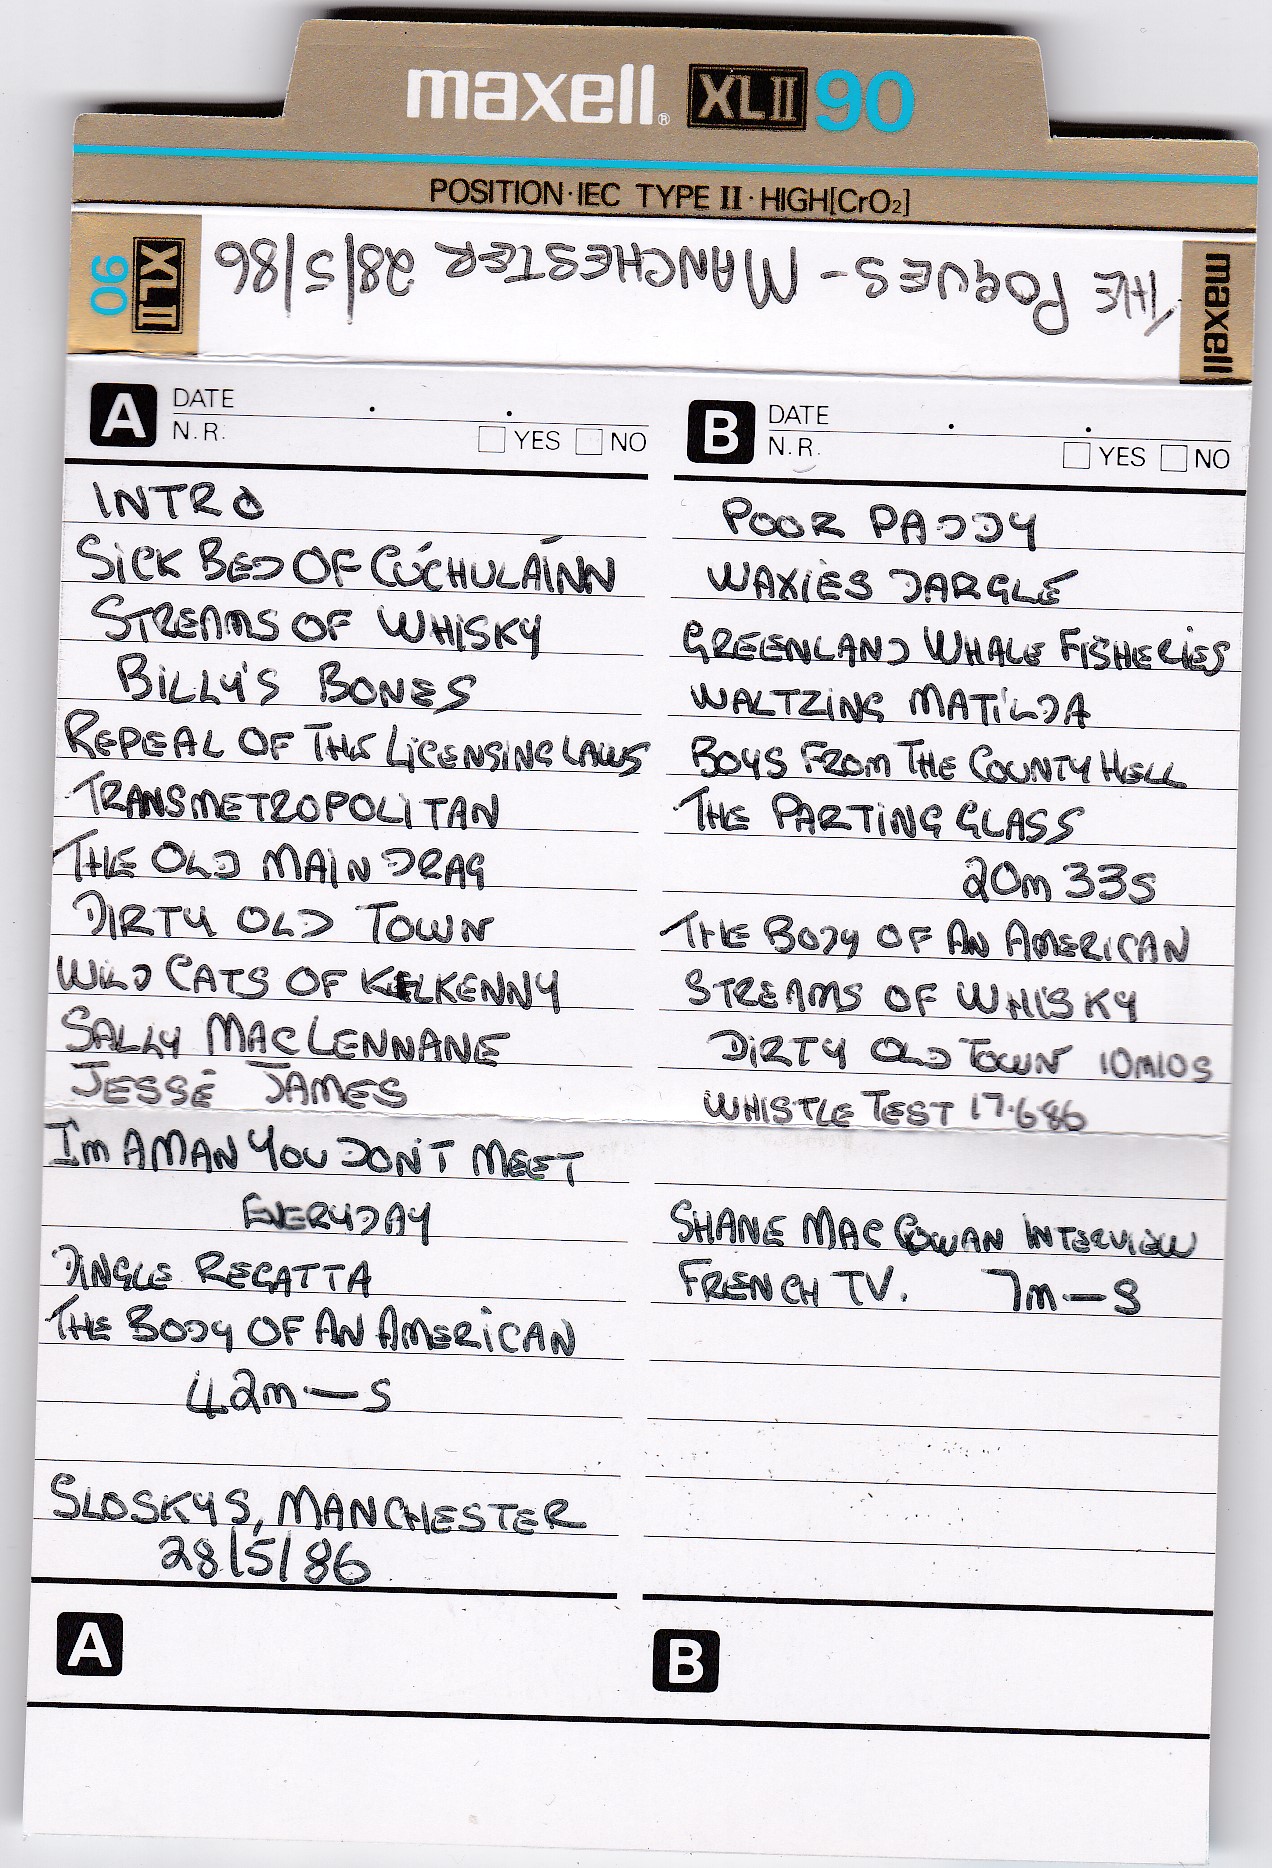 maxell® XLII 90
POSITION·IEC TYPE II·HIGH[CrO2]
THE POGUES - MANCHESTER 28/5/86
maxell
XLII 90
A DATE . .
N.R. YES NO
INTRO
SICK BED OF CÚCHULÁINN
STREAMS OF WHISKY
BILLY'S BONES
REPEAL OF THE LICENSING LAWS
TRANSMETROPOLITAN
THE OLD MAIN DRAG
DIRTY OLD TOWN
WILD CATS OF KILKENNY
SALLY MACLENNANE
JESSE JAMES
I'M A MAN YOU DON'T MEET
EVERYDAY
DINGLE REGATTA
THE BODY OF AN AMERICAN
42m — S
SLOSKYS, MANCHESTER
28/5/86
A
B DATE . .
N.R. YES NO
POOR PADDY
WAXIES DARGLE
GREENLAND WHALE FISHERIES
WALTZING MATILDA
BOYS FROM THE COUNTY HELL
THE PARTING GLASS
20m 33s
THE BODY OF AN AMERICAN
STREAMS OF WHISKY
DIRTY OLD TOWN 10m10s
WHISTLE TEST 17.6.86
SHANE MAC GOWAN INTERVIEW
FRENCH TV. 7m — S
B